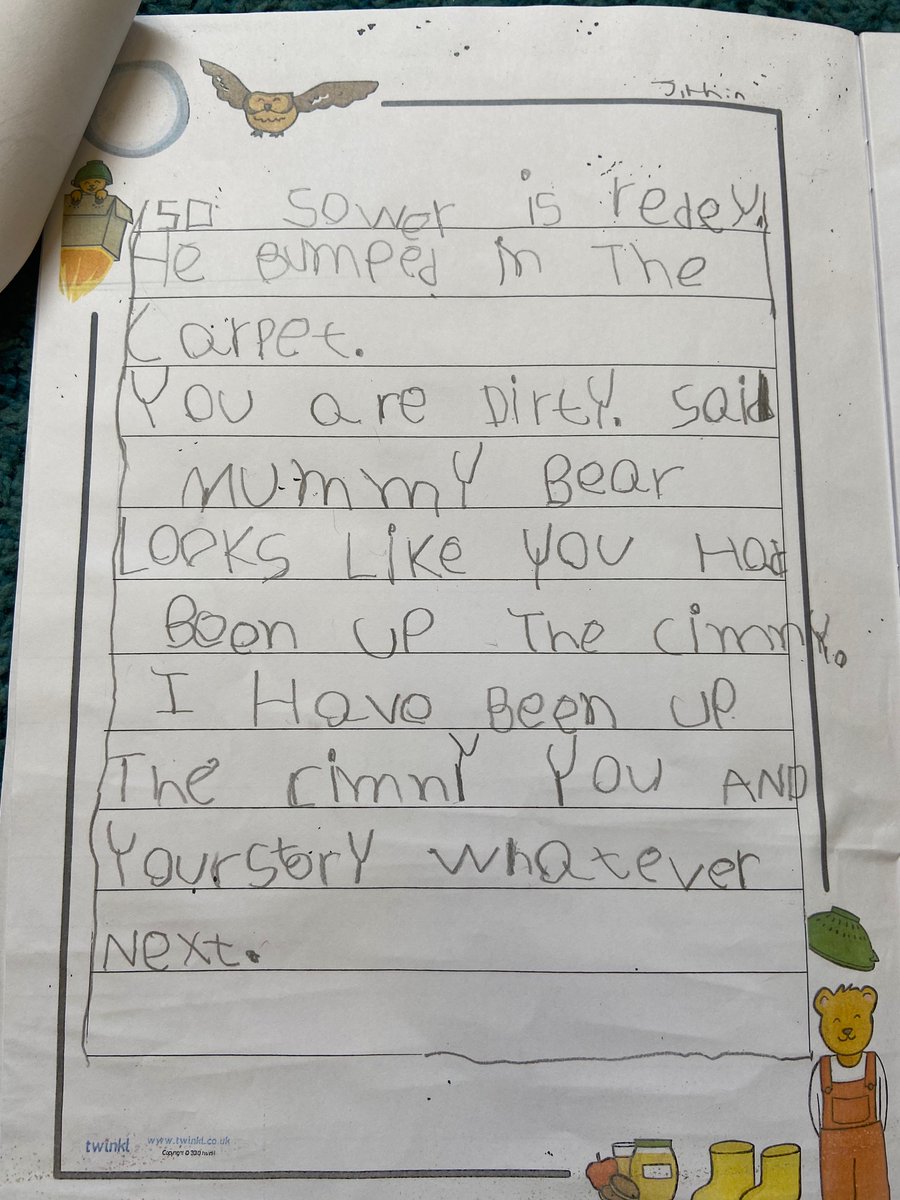 so sower is redey.
He Bumped in The
Carpet.
You are Dirty. said
Mummy Bear
Looks Like You Had
Been up The cimny.
I Have Been up
The cimny You AND
Your story whatever
Next.
twinkl www.twinkl.co.uk